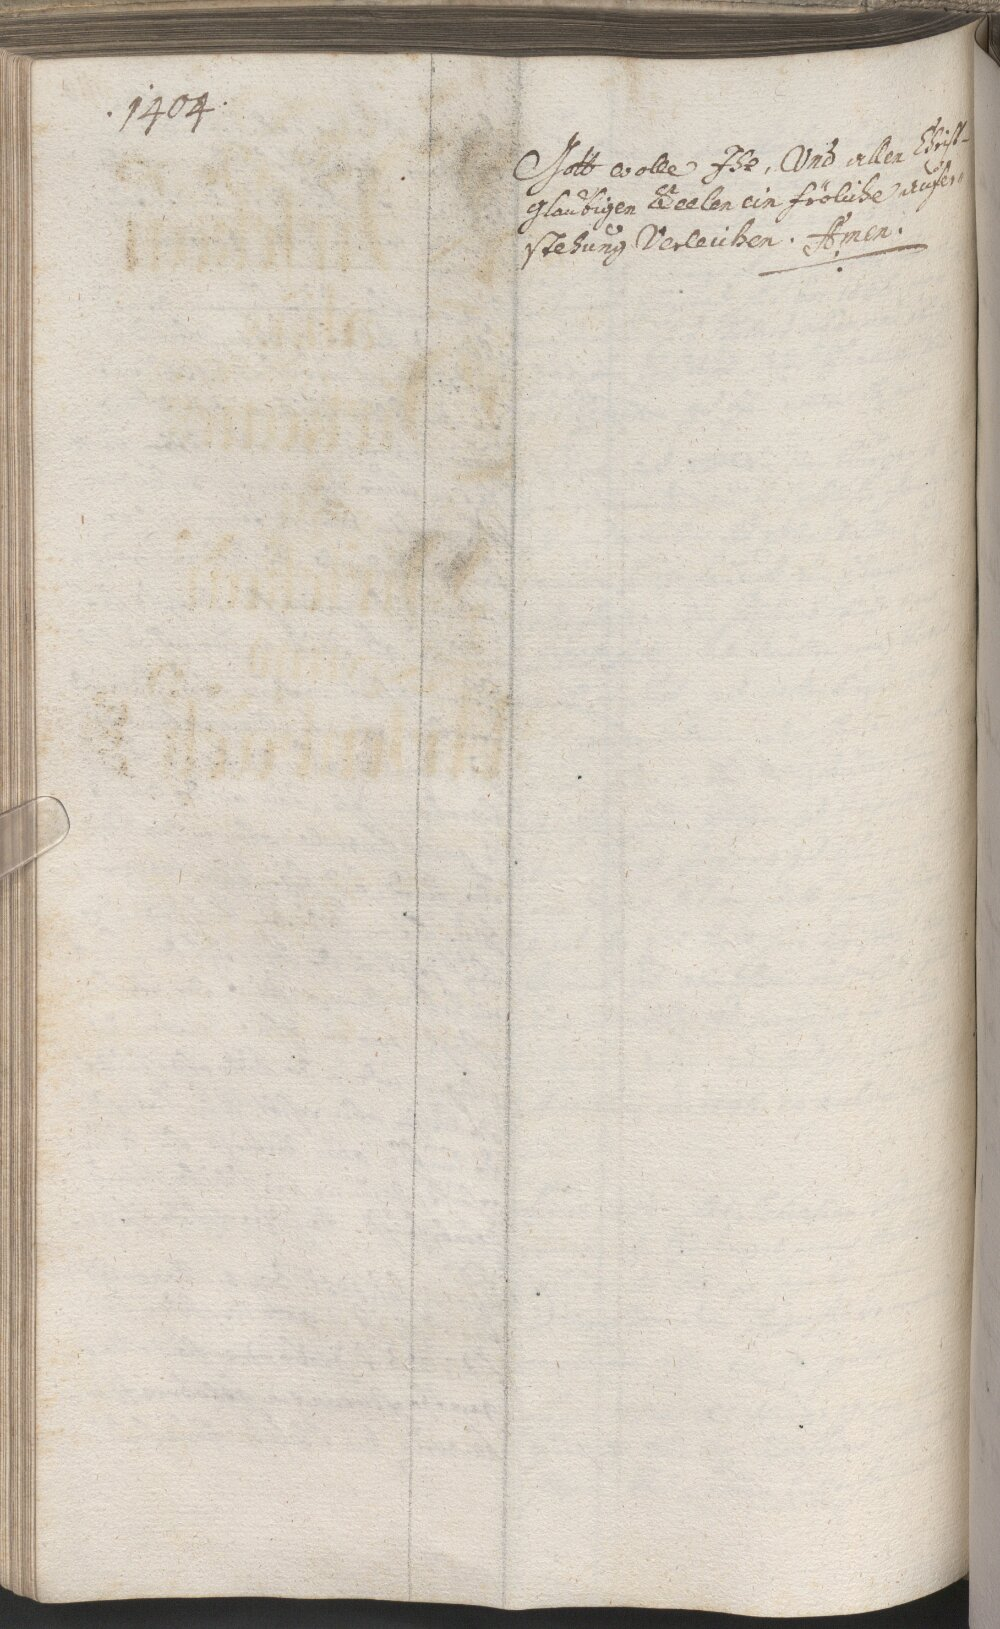 . 1404 .
Gott wolle Ihr, Und allen Christ-
glaubigen Seelen ein fröliche aufer-
stehung Verleichen . Amen .